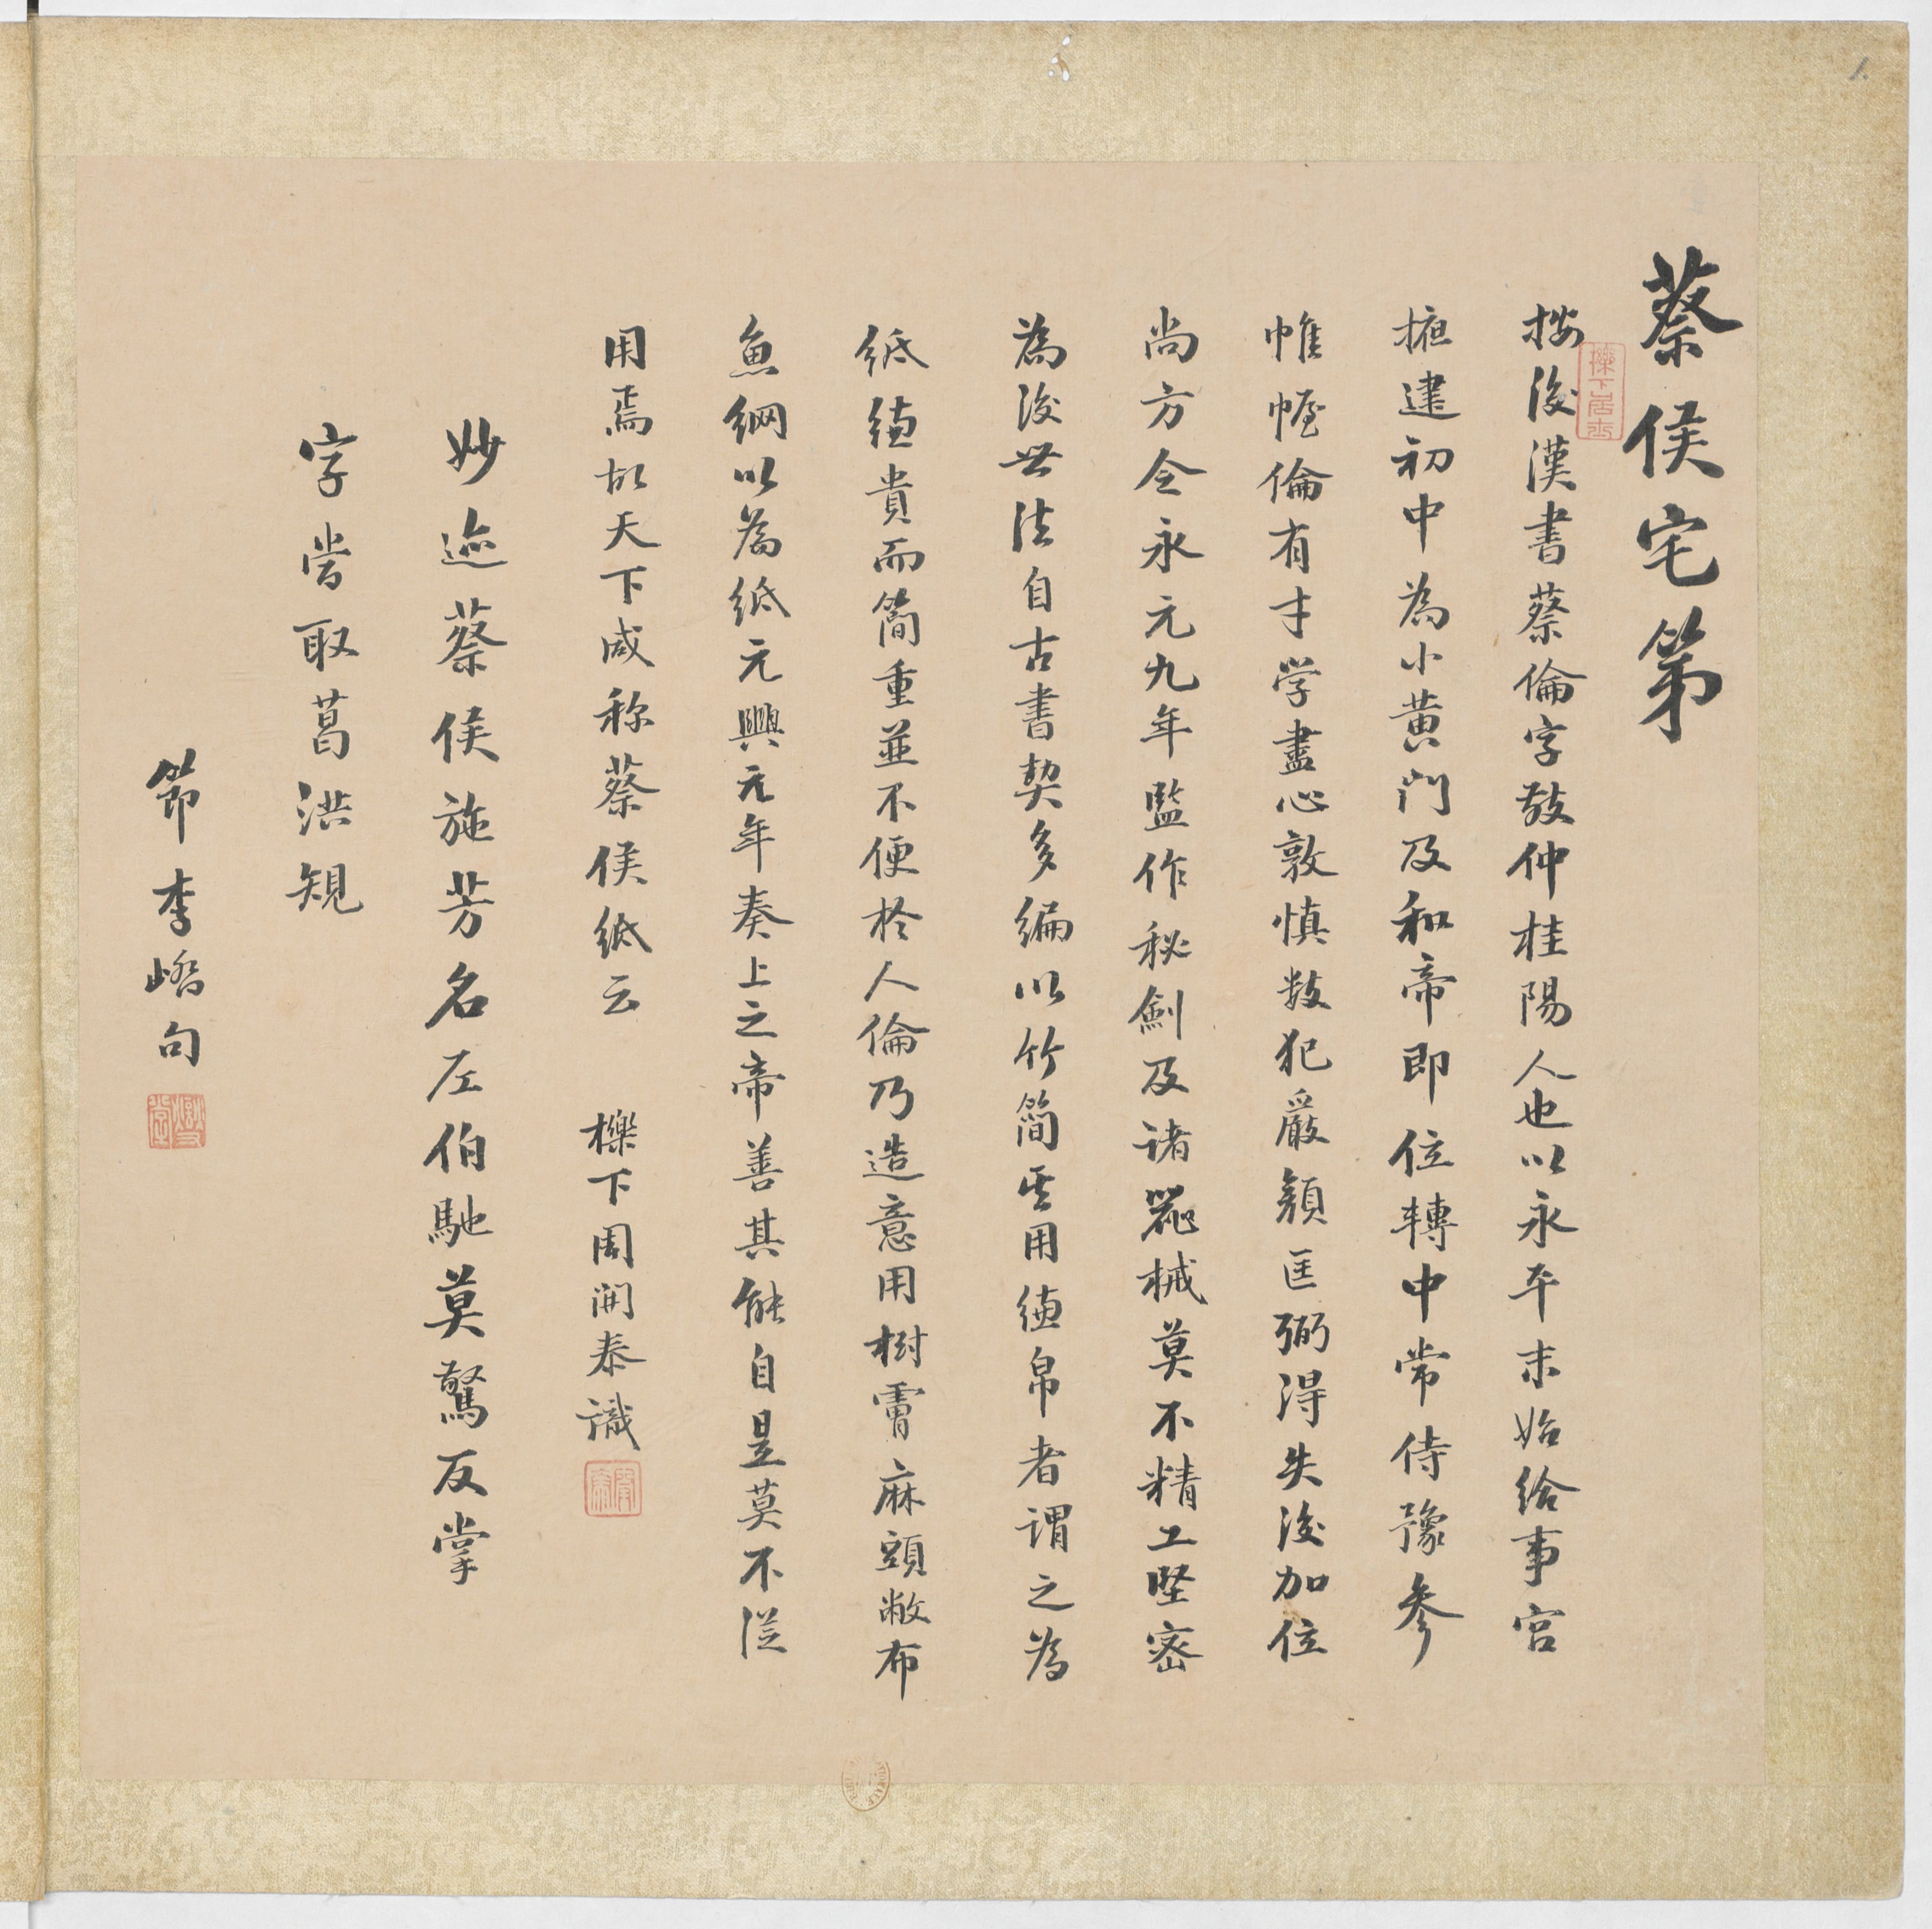 蔡侯宅第
按後漢書蔡倫字敬仲桂陽人也以永平末始給事宮
掖建初中為小黃門及和帝即位轉中常侍豫參
帷幄倫有才学盡心敦慎數犯嚴顏匡弼得失後加位
尚方令永元九年監作秘劍及诸器械莫不精工堅密
為後世法自古書契多編以竹簡其用縑帛者謂之為
紙縑貴而簡重並不便於人倫乃造意用樹膚麻頭敝布
魚網以為紙元興元年奏上之帝善其能自是莫不從
用焉故天下咸称蔡侯紙云 櫟下周開泰識
妙迹蔡侯施芳名左伯馳莫驚反掌
字當取葛洪規
節李嶠句
櫟下居士